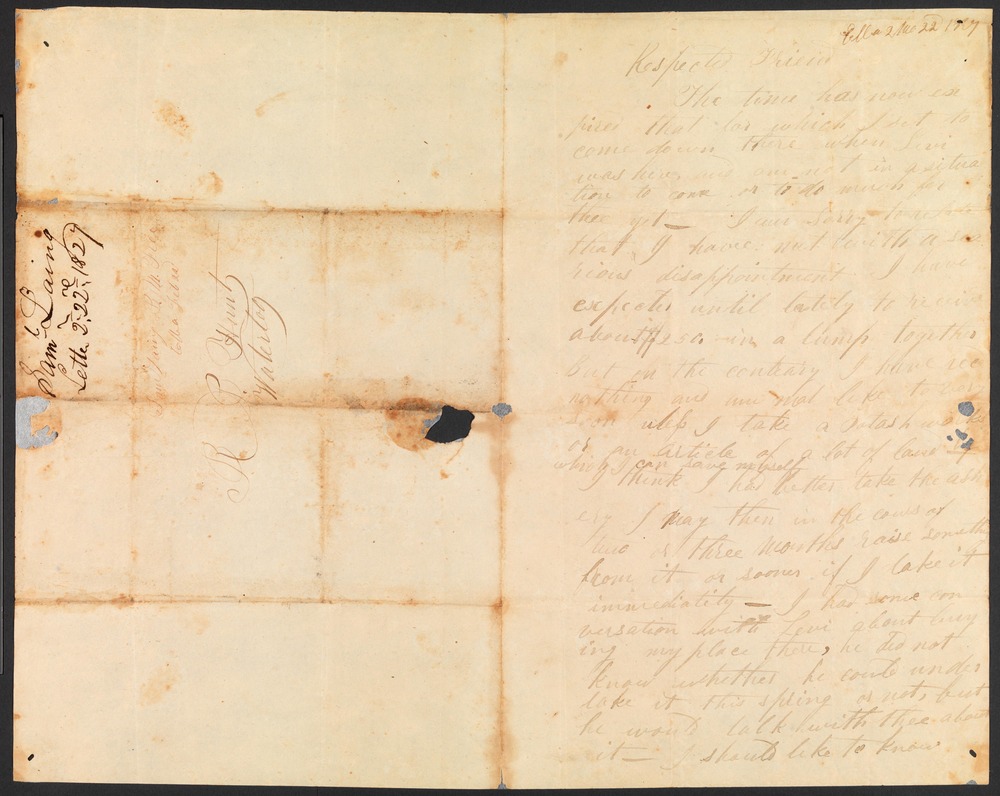 Saml Laing
Letter 2. 22nd 1829
R P Hunt
Waterloo
Elba 2 Mo 22d 1829
Respected Friend
The time has now ex
pired that for which I set to
come down there when Levi
was here, and am not in a situa
tion to come or to do much for
thee yet — I am sorry to
that I have met with a se
rious disappointment I have
expected until lately to receive
about $250 in a lump together
but on the contrary I have rec
nothing and am not like to
soon unless I take a Potash
or an article of a lot of land by
which I can save myself
I think I had better take the ash
ery I may then in the cours of
two or three months raise someth
from it or sooner if I take it
immediatity — I had some con
versation with Levi about buy
ing my place there, he did not
know whether he could under
take it this spring or not, but
he would talk with thee about
it — I should like to know